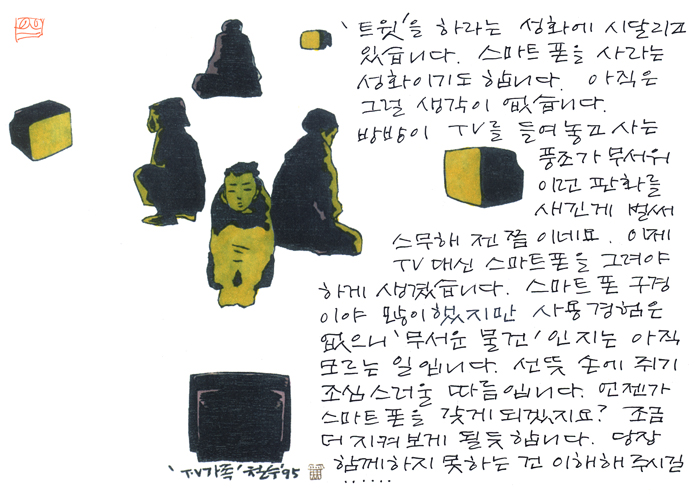 '트윗'을 하라는 성화에 시달리고
있습니다. 스마트폰을 사라는
성화이기도 합니다. 아직은
그럴 생각이 없습니다.
방방이 TV를 들여놓고 사는
풍조가 무서워
이런 판화를
새긴게 벌써
스무해 전쯤이네요. 이제
TV 대신 스마트폰을 그려야
하게 생겼습니다. 스마트폰 구경
이야 많이 했지만 사용경험은
없으니 '무서운 물건'인지는 아직
모르는 일입니다. 선뜻 손에 쥐기
조심스러울 따름입니다. 언젠가
스마트폰을 갖게 되겠지요? 조금
더 지켜보게 될듯합니다. 당장
함께하지 못하는 건 이해해 주시길
......
'TV가족' 철수 '95